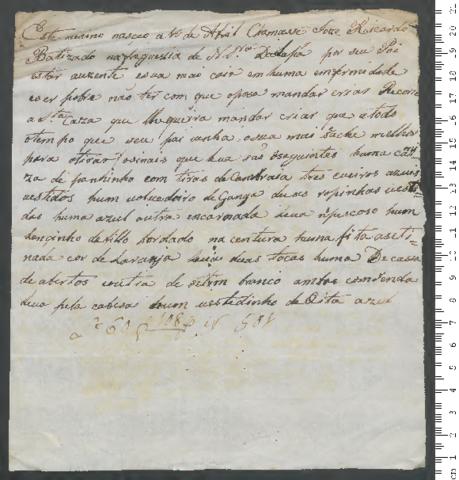 Este menino nasceo a 4 de Abril Chamasse Joze Ricardo
Batizado na freguesia de N. Sr.ª por seu Pai
estar auzente e sua mae cair em huma emfermidade
e ser pobre não ter com que oposa mandar criar Recorre
a St.ª Caza que lho queira mandar criar que a todo
otempo que seu pai venha e sua mai se ache milhor
para otirar o sinais que leva são oseguintes huma cami
za de paninho com tiras de Cambraia tres cueiros azues
vestidos hum de Ganga duas ropinhas vesti
das huma azul outra encarnada leva opescoso hum
lencinho de filo bordado na centura huma fita aseti
nada cor de Laranja leva duas Tocas huma De casa
de abertos e outra de setim branco ambas com renda
leva pela cabesa hum vestidinho de Xita azul